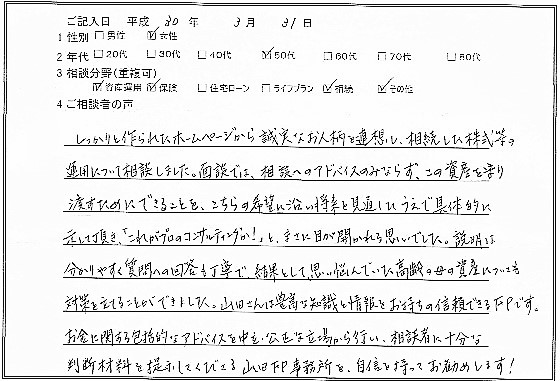 ご記入日 平成 30 年 3月 31日
1 性別 □男性 ☑女性
2 年代 □20代 □30代 □40代 ☑50代 □60代 □70代 □80代
3 相談分野(重複可)
☑資産運用 ☑保険 □住宅ローン □ライフプラン ☑相続 ☑その他
4 ご相談者の声
しっかりと作られたホームページから誠実なお人柄を連想し、相続した株式等の
運用について相談しました。面談では、相談へのアドバイスのみならず、この資産を守り
渡すためにできることを、こちらの希望に沿い将来を見通したうえで具体的に
示して頂き、「これがプロのコンサルティングか!」と、まさに目が開かれる思いでした。説明は
分かりやすく質問への回答も丁寧で、結果として、思い悩んでいた高齢の母の資産についても
対策を立てることができました。山田さんは豊富な知識と情報をお持ちの信頼できるFPです。
お金に関する包括的なアドバイスを中立・公正な立場から行い、相談者に十分な
判断材料を提示してくださる山田FP事務所を、自信を持ってお勧めします!